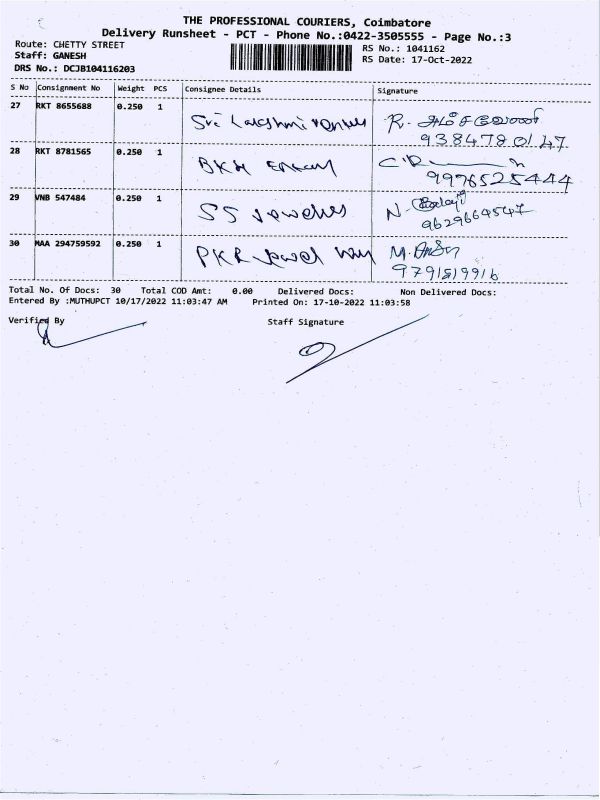 THE PROFESSIONAL COURIERS, Coimbatore
Delivery Runsheet - PCT - Phone No.:0422-3505555 - Page No.:3
Route: CHETTY STREET
RS No.: 1041162
Staff: GANESH
RS Date: 17-Oct-2022
DRS No.: DCJB104116203
S No Consignment No Weight PCS Consignee Details Signature
27 RKT 8655688 0.250 1 Sri Lakshmi R.
9384780147
28 RKT 8781565 0.250 1 BKH
9976525444
29 VNB 547484 0.250 1 SS Jewellers N. Balaji
9629664547
30 MAA 294759592 0.250 1 PKR Jewel M.
979181991b
Total No. Of Docs: 30 Total COD Amt: 0.00 Delivered Docs: Non Delivered Docs:
Entered By :MUTHUPCT 10/17/2022 11:03:47 AM Printed On: 17-10-2022 11:03:58
Verified By Staff Signature